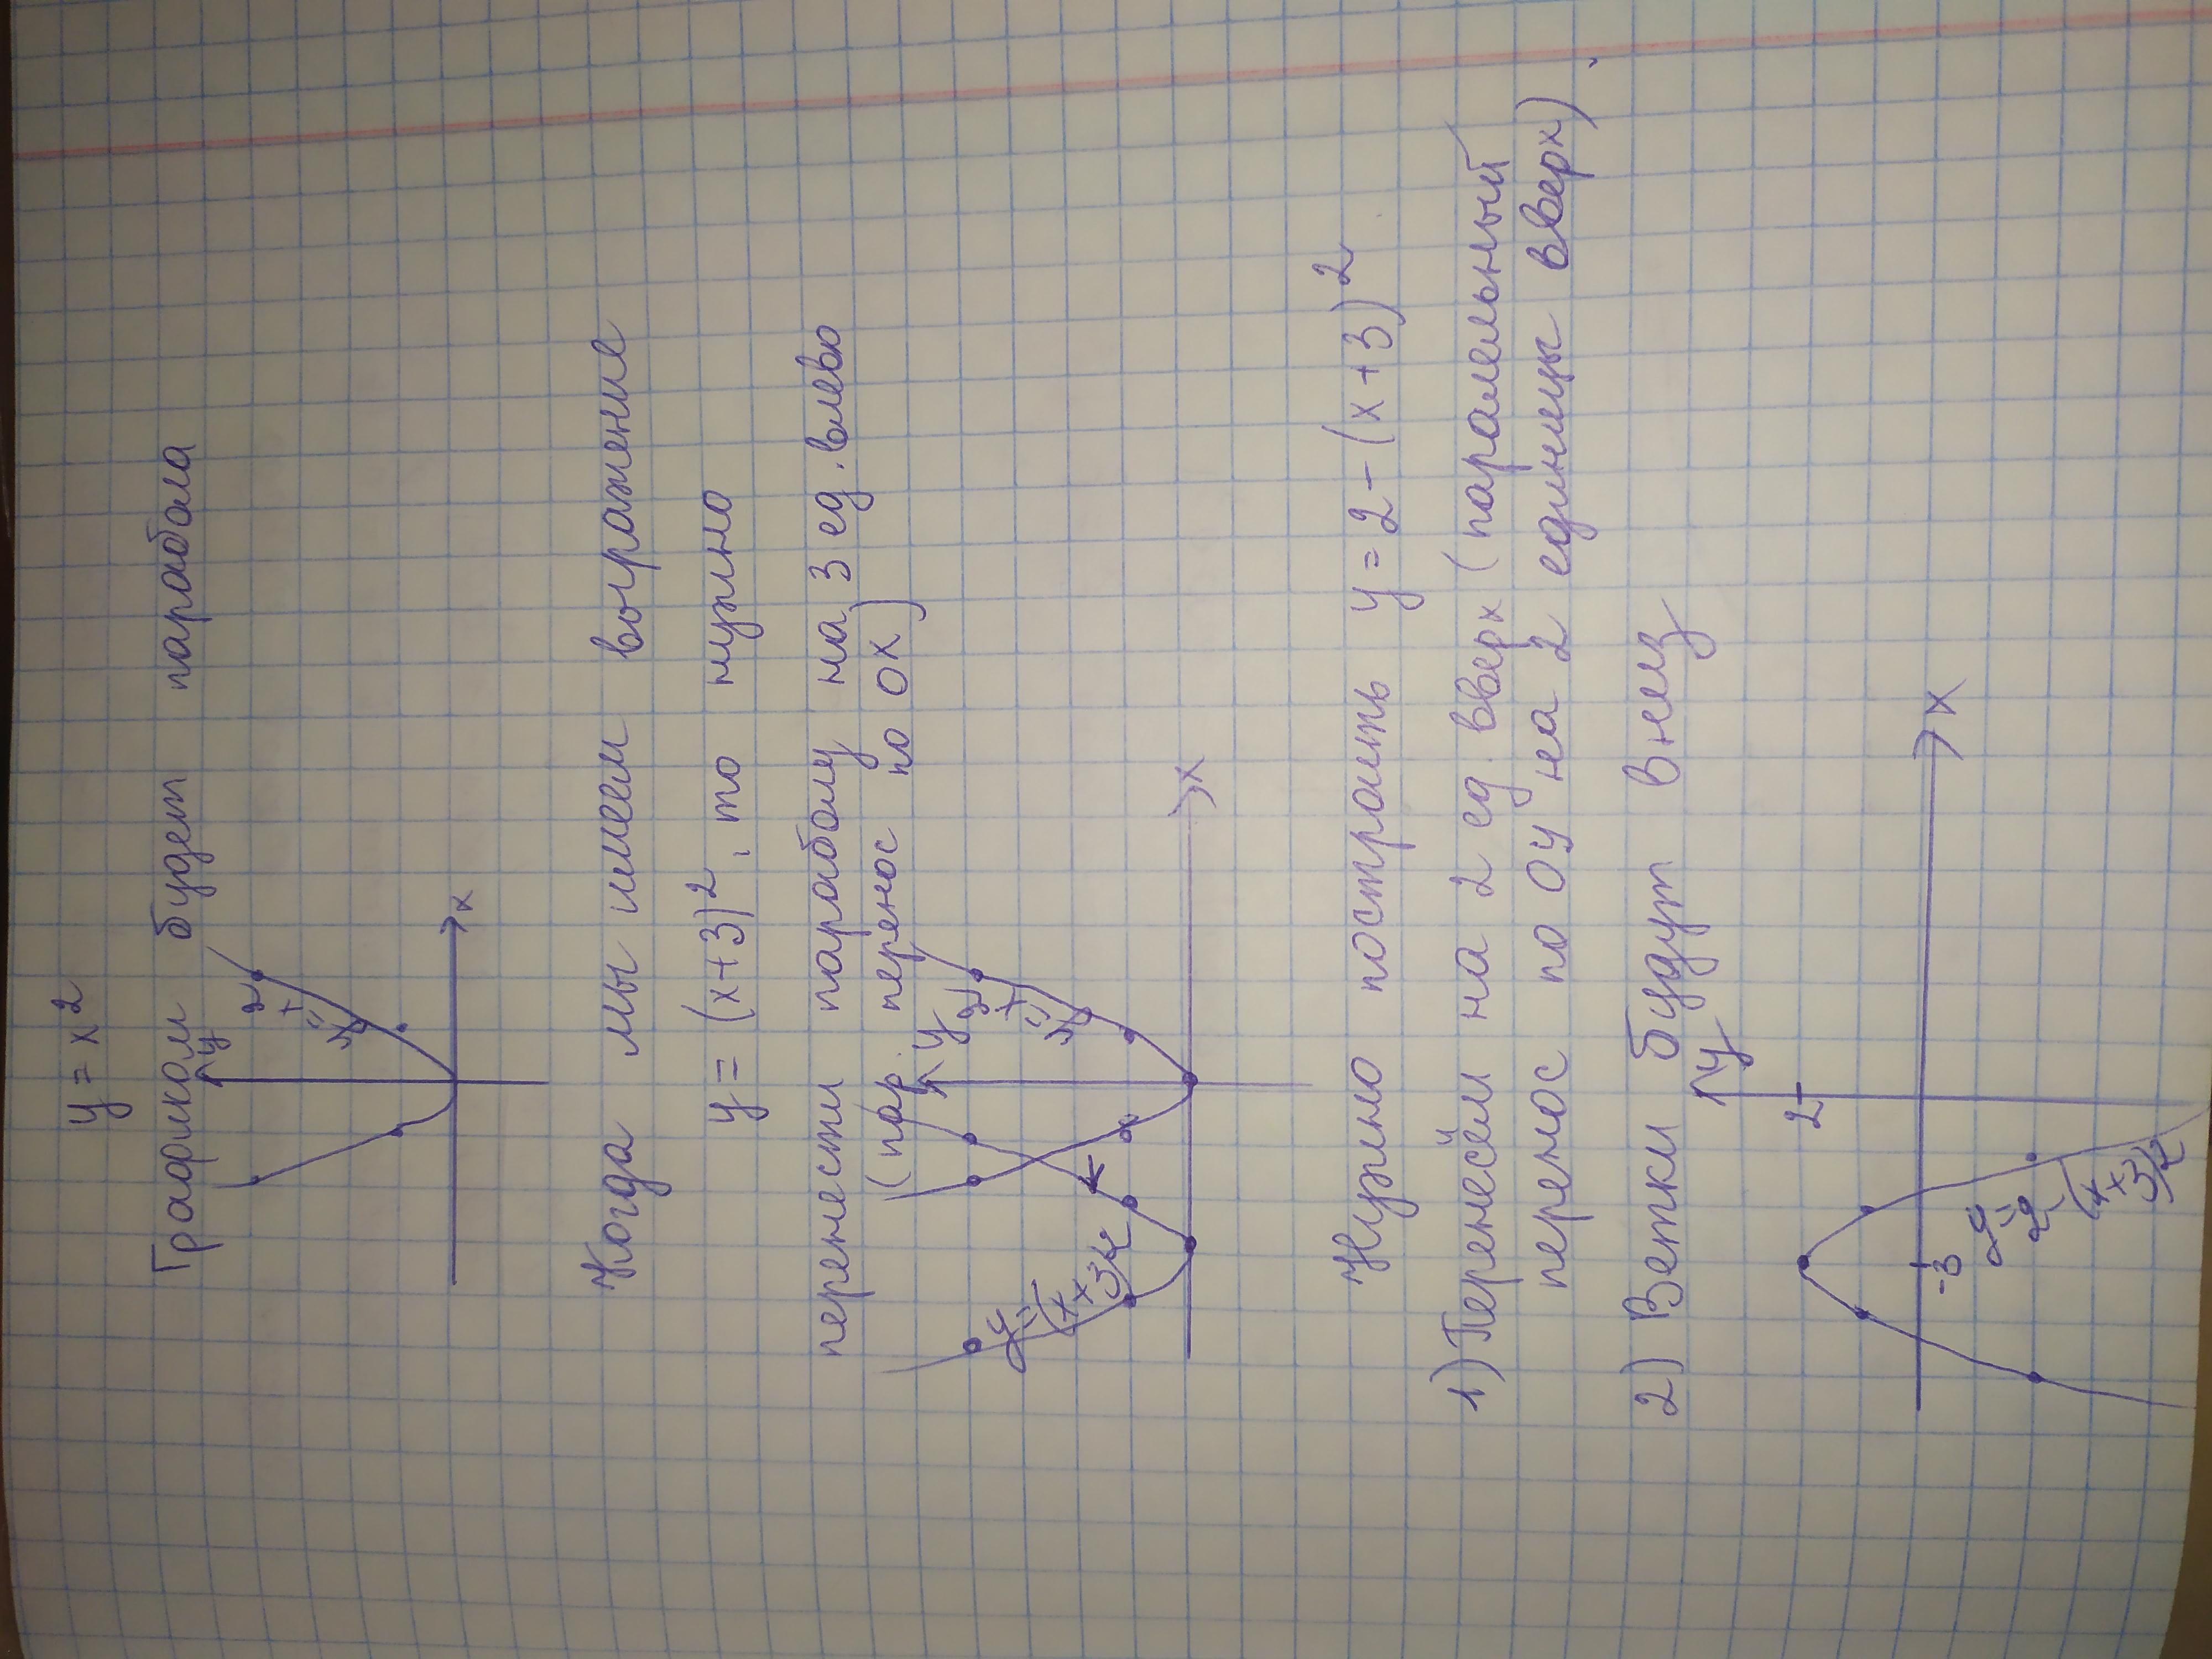 y = x²
Графиком будет парабола
y
y = x²
x
Когда мы имеем выражение
y = (x+3)², то нужно
перенести параболу на 3 ед. влево
(пар. перенос по ОХ)
y
y = x²
y = (x+3)²
x
Нужно построить y = 2 - (x+3)²
1) Перенесём на 2 ед. вверх (паралельный
перенос по ОУ на 2 единицы вверх).
2) Ветки будут вниз
y
2
x
-3
y = 2 - (x+3)²